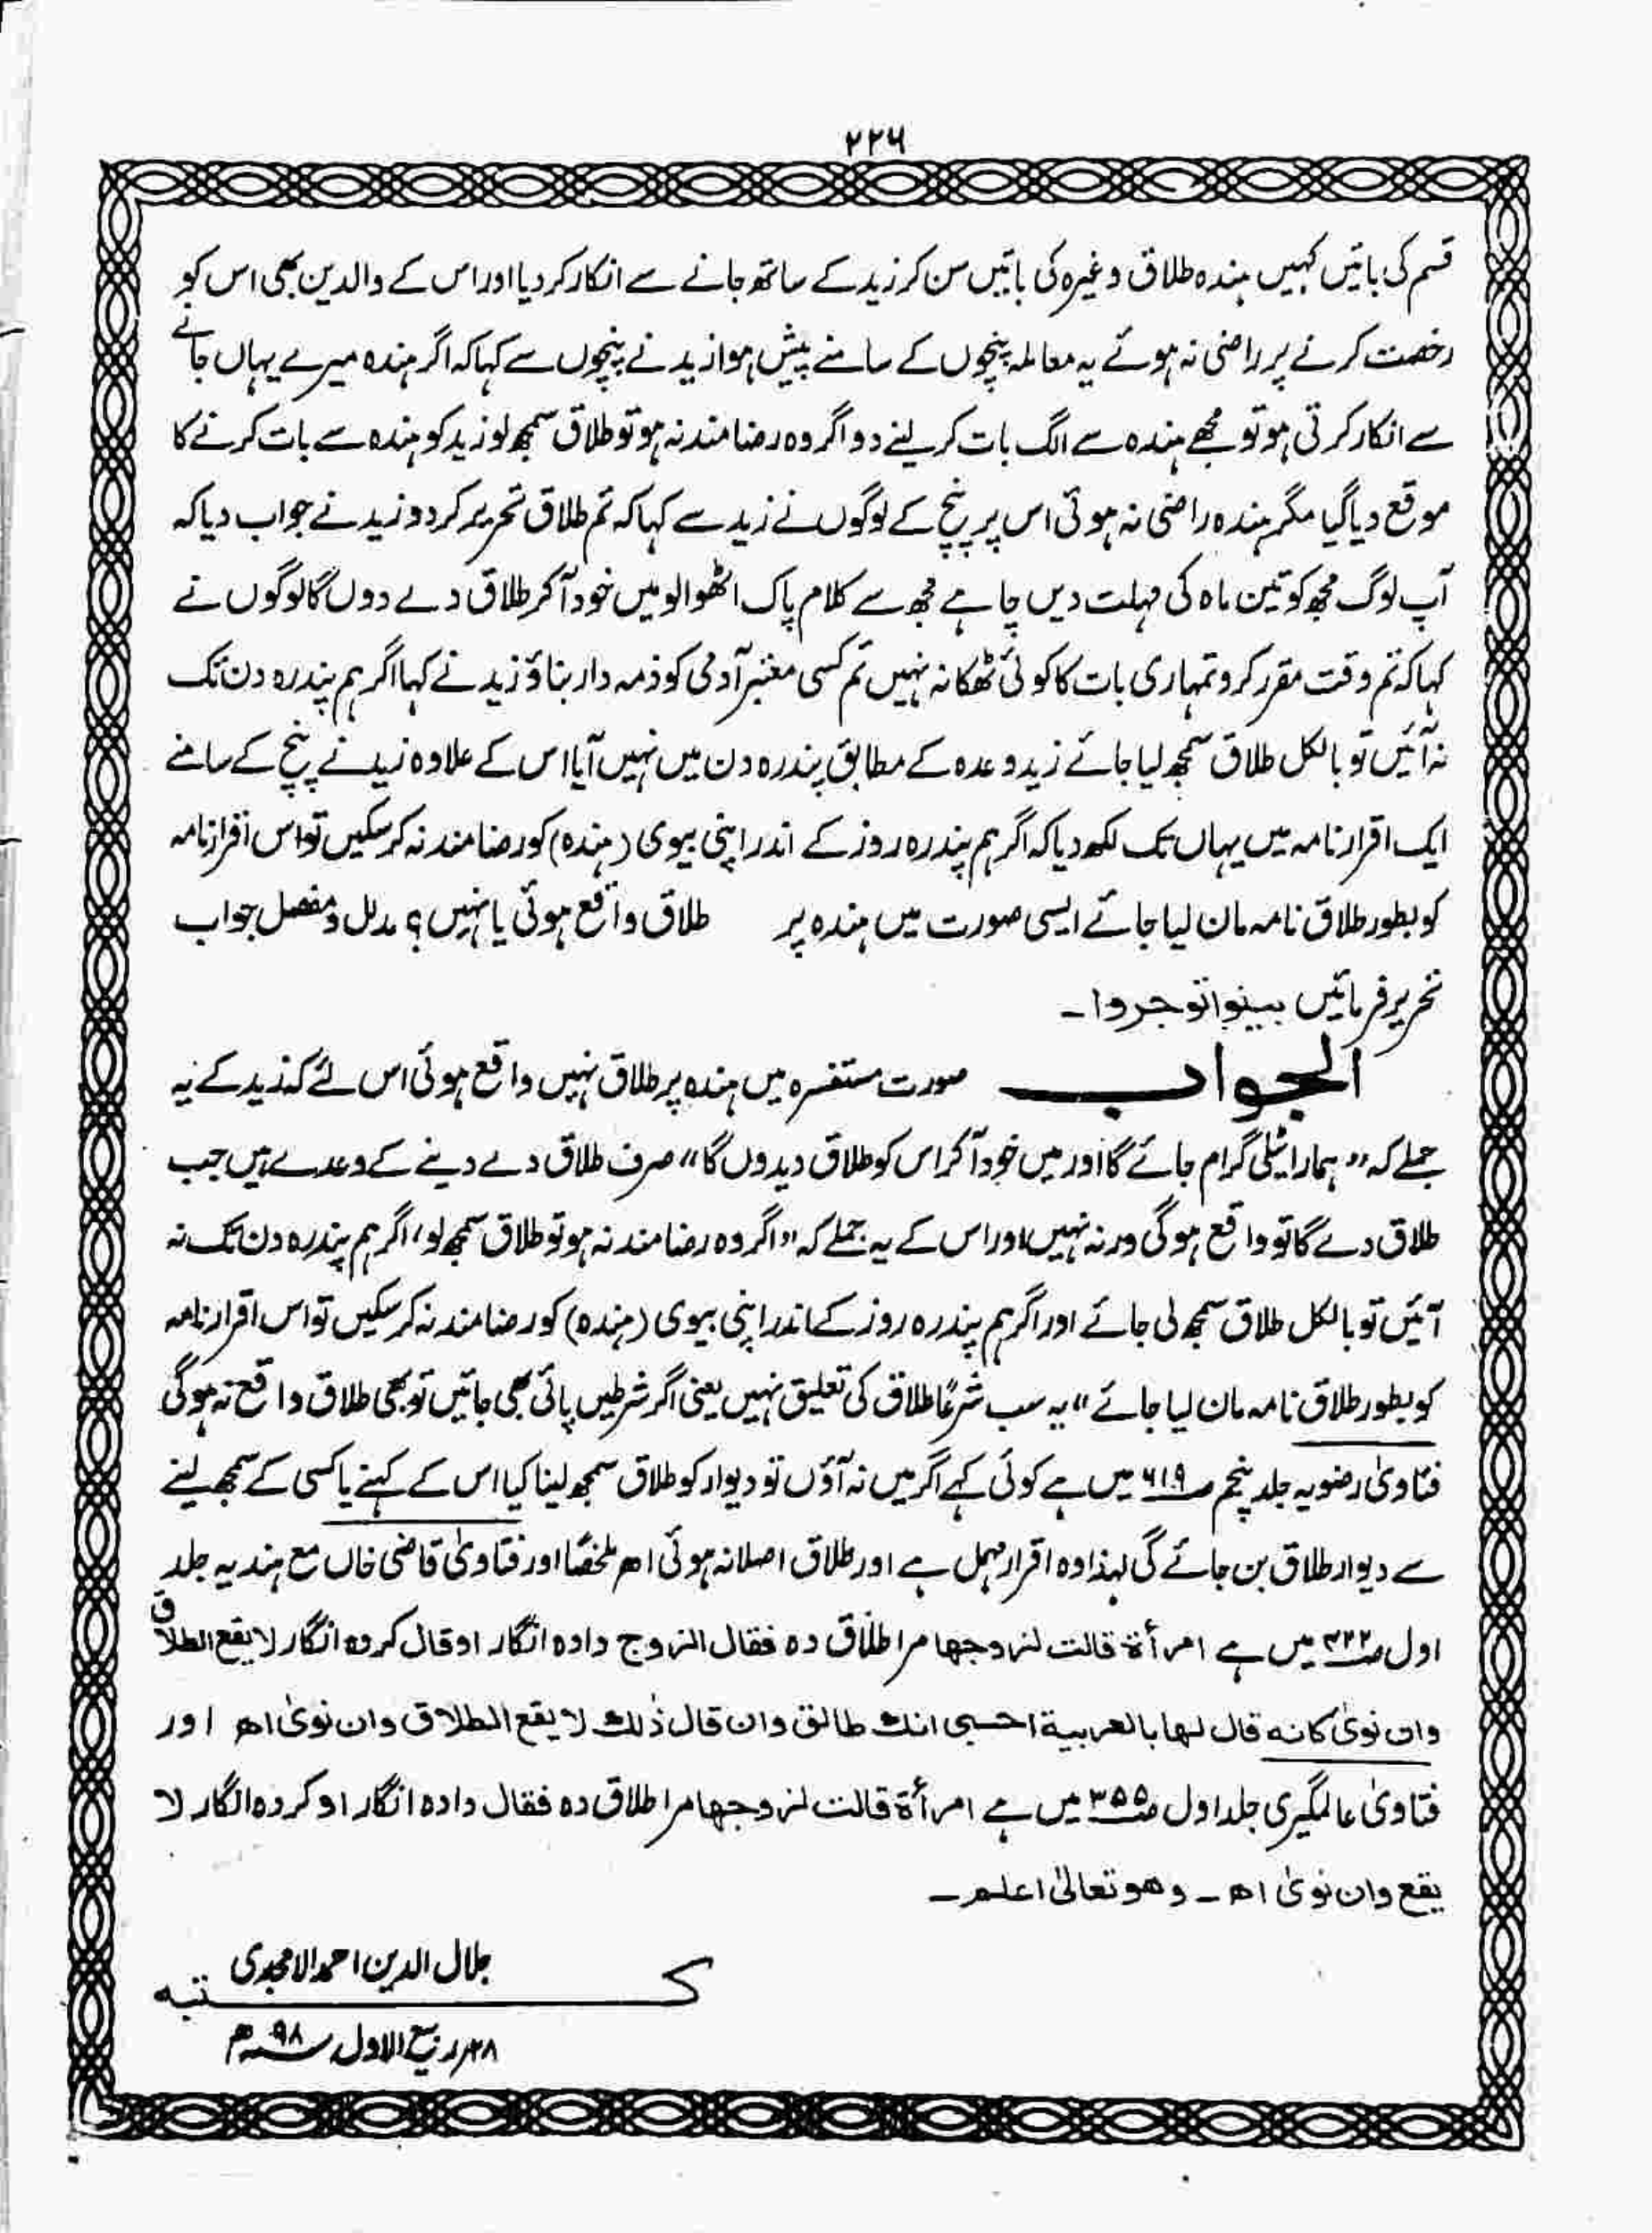 ۲۲۶
قسم کی باتیں کہیں ہندہ طلاق وغیرہ کی باتیں سن کر زید کے ساتھ جانے سے انکار کر دیا اور اس کے والدین بھی اس کو
رخصت کرنے پر راضی نہ ہوئے یہ معاملہ پنچوں کے سامنے پیش ہوا زید نے پنچوں سے کہا کہ اگر ہندہ میرے یہاں جانے
سے انکار کرتی ہو تو مجھے ہندہ سے الگ بات کر لینے دو اگر وہ رضامند نہ ہو تو طلاق سمجھ لو زید کو ہندہ سے بات کرنے کا
موقع دیا گیا مگر ہندہ راضی نہ ہوئی اس پر پنچ کے لوگوں نے زید سے کہا کہ تم طلاق تحریر کر دو زید نے جواب دیا کہ
آپ لوگ مجھ کو تین ماہ کی مہلت دیں چاہے مجھ سے کلام پاک اٹھوا لو میں خود آ کر طلاق دے دوں گا لوگوں نے
کہا کہ تم وقت مقرر کرو تمہاری بات کا کوئی ٹھکانہ نہیں تم کسی معتبر آدمی کو ذمہ دار بناؤ زید نے کہا اگر ہم پندرہ دن تک
نہ آئیں تو بالکل طلاق سمجھ لیا جائے زید وعدہ کے مطابق پندرہ دن میں نہیں آیا اس کے علاوہ زید نے پنچ کے سامنے
ایک اقرار نامہ میں یہاں تک لکھ دیا کہ اگر ہم پندرہ روز کے اندر اپنی بیوی (ہندہ) کو رضامند نہ کر سکیں تو اس اقرار نامہ
کو بطور طلاق نامہ مان لیا جائے ایسی صورت میں ہندہ پر طلاق واقع ہوئی یا نہیں؟ مدلل و مفصل جواب
تحریر فرمائیں بینوا توجروا۔
الجواب صورت مستفسرہ میں ہندہ پر طلاق نہیں واقع ہوئی اس لئے کہ زید کے یہ
جملے کہ ”ہمارا ٹیلی گرام جائے گا اور میں خود آ کر اس کو طلاق دیدوں گا“ صرف طلاق دے دینے کے وعدے ہیں جب
طلاق دے گا تو واقع ہوگی ورنہ نہیں اور اس کے یہ جملے کہ ”اگر وہ رضامند نہ ہو تو طلاق سمجھ لو، اگر ہم پندرہ دن تک نہ
آئیں تو بالکل طلاق سمجھ لی جائے اور اگر ہم پندرہ روز کے اندر اپنی بیوی (ہندہ) کو رضامند نہ کر سکیں تو اس اقرار نامہ
کو بطور طلاق نامہ مان لیا جائے“ یہ سب شرعًا طلاق کی تعلیق نہیں یعنی اگر شرطیں پائی بھی جائیں تو بھی طلاق واقع نہ ہوگی
فتاویٰ رضویہ جلد پنجم ص۶۱۹ میں ہے کوئی کہے اگر میں نہ آؤں تو دیوار کو طلاق سمجھ لینا کیا اس کے کہنے یا کسی کے سمجھ لینے
سے دیوار طلاق بن جائے گی لہذا وہ اقرار مہمل ہے اور طلاق اصلا نہ ہوئی اھ ملخصًا اور فتاویٰ قاضی خاں مع ہندیہ جلد
اول ص۴۲۲ میں ہے امرأة قالت لزوجها مرا طلاق ده فقال الزوج داده انگار او قال کرده انگار لا یقع الطلاق
وان نویٰ کانہ قال لها بالعربیة احسبی انك طالق وان قال ذٰلك لا یقع الطلاق وان نویٰ اھ اور
فتاویٰ عالمگیری جلد اول ص۳۵۵ میں ہے امرأة قالت لزوجها مرا طلاق ده فقال داده انگار او کرده انگار لا
یقع وان نویٰ اھ۔ وهو تعالیٰ اعلم۔
جلال الدین احمد الامجدی
کتبہ
۲۸؍ ربیع الاول ۹۸ھ